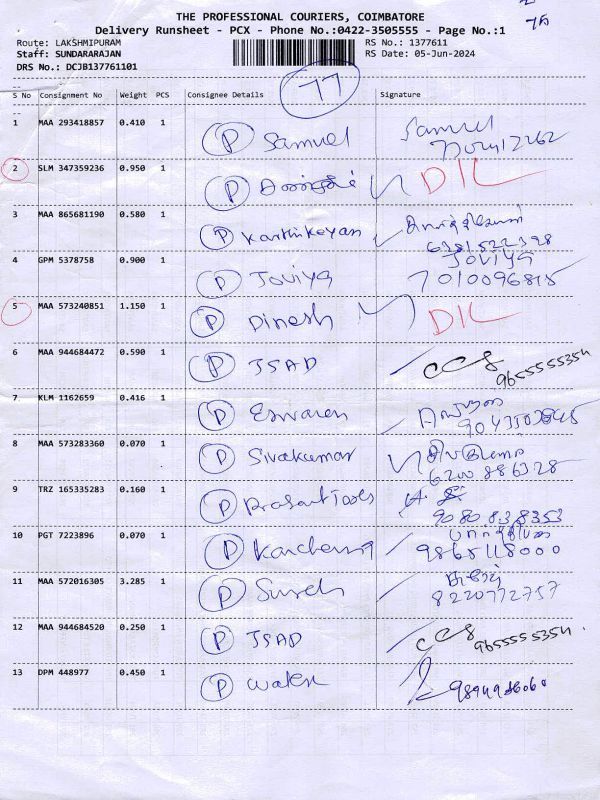 THE PROFESSIONAL COURIERS, COIMBATORE
Delivery Runsheet - PCX - Phone No.:0422-3505555 - Page No.:1
Route: LAKSHMIPURAM
RS No.: 1377611
Staff: SUNDARARAJAN
RS Date: 05-Jun-2024
DRS No.: DCJB137761101
77
S No Consignment No Weight PCS Consignee Details Signature
1 MAA 293418857 0.410 1 P Samuel Samuel
2 SLM 347359236 0.950 1 P DIL
3 MAA 865681190 0.580 1 P Karthikeyan
6381522328
4 GPM 5378758 0.900 1 P Joviya Joviya
7010096815
5 MAA 573240851 1.150 1 P Dinesh DIL
6 MAA 944684472 0.590 1 P JSAD CCS
9655555354
7 KLM 1162659 0.416 1 P Eswaren
8 MAA 573283360 0.070 1 P Sivakumar
6200886328
9 TRZ 165335283 0.160 1 P
9080838353
10 PGT 7223896 0.070 1 P
9865118000
11 MAA 572016305 3.285 1 P Suresh சுரேஷ்
8220772757
12 MAA 944684520 0.250 1 P JSAD CCS
9655555354
13 DPM 448977 0.450 1 P